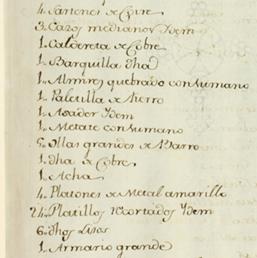 4. Sartenes de Covre
3. Cazos medianos Ydem
1. Caldereta de Cobre
1. Barquilla dha
1. Almires quebrado con su mano
1. Paletilla de hierro
1. Asador Ydem
1. Metate con su mano
5. Ollas grandes de Barro
1. dha de Cobre
1. Acha
4. Platones de Metal amarillo
24. Platillos recortados Ydem
6. dhos Lisos
1. Armario grande